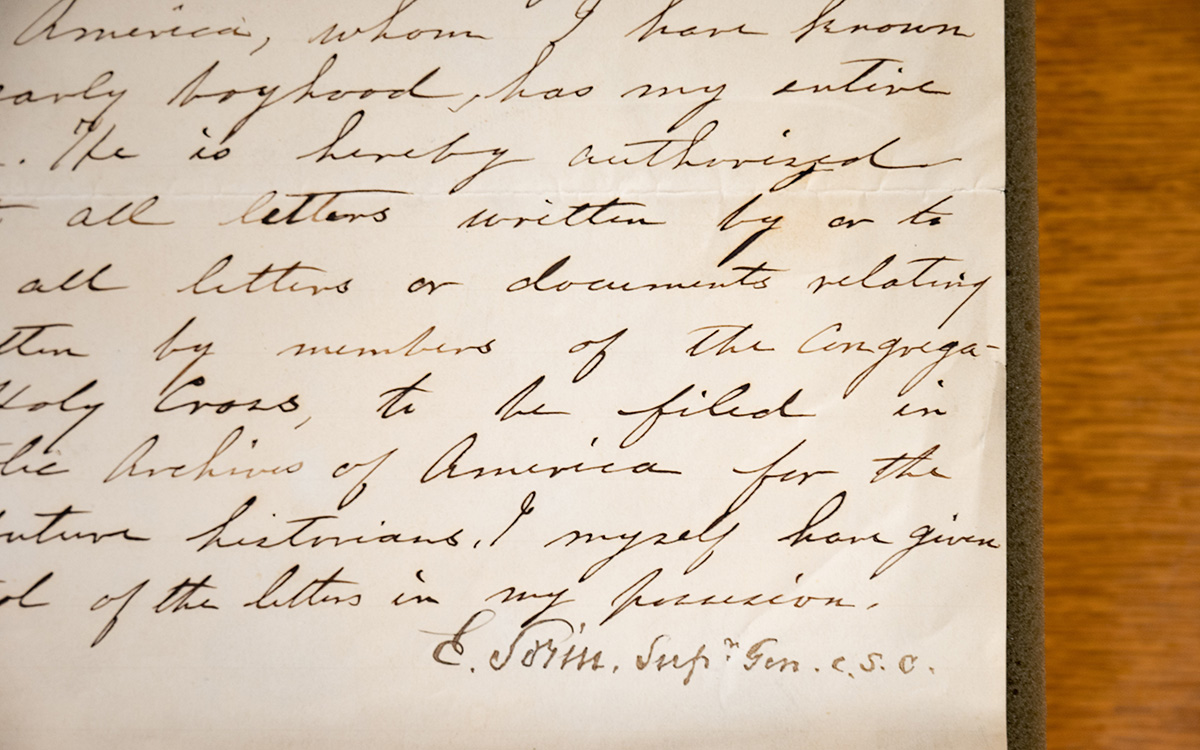 America, whom I have known
early boyhood, has my entire
. He is hereby authorized
all letters written by or to
all letters or documents relating
tten by members of the Congrega-
Holy Cross, to be filed in
lic Archives of America for the
future historians. I myself have given
ol of the letters in my possesion.
E. Sorin. Supr. Gen. C.S.C.